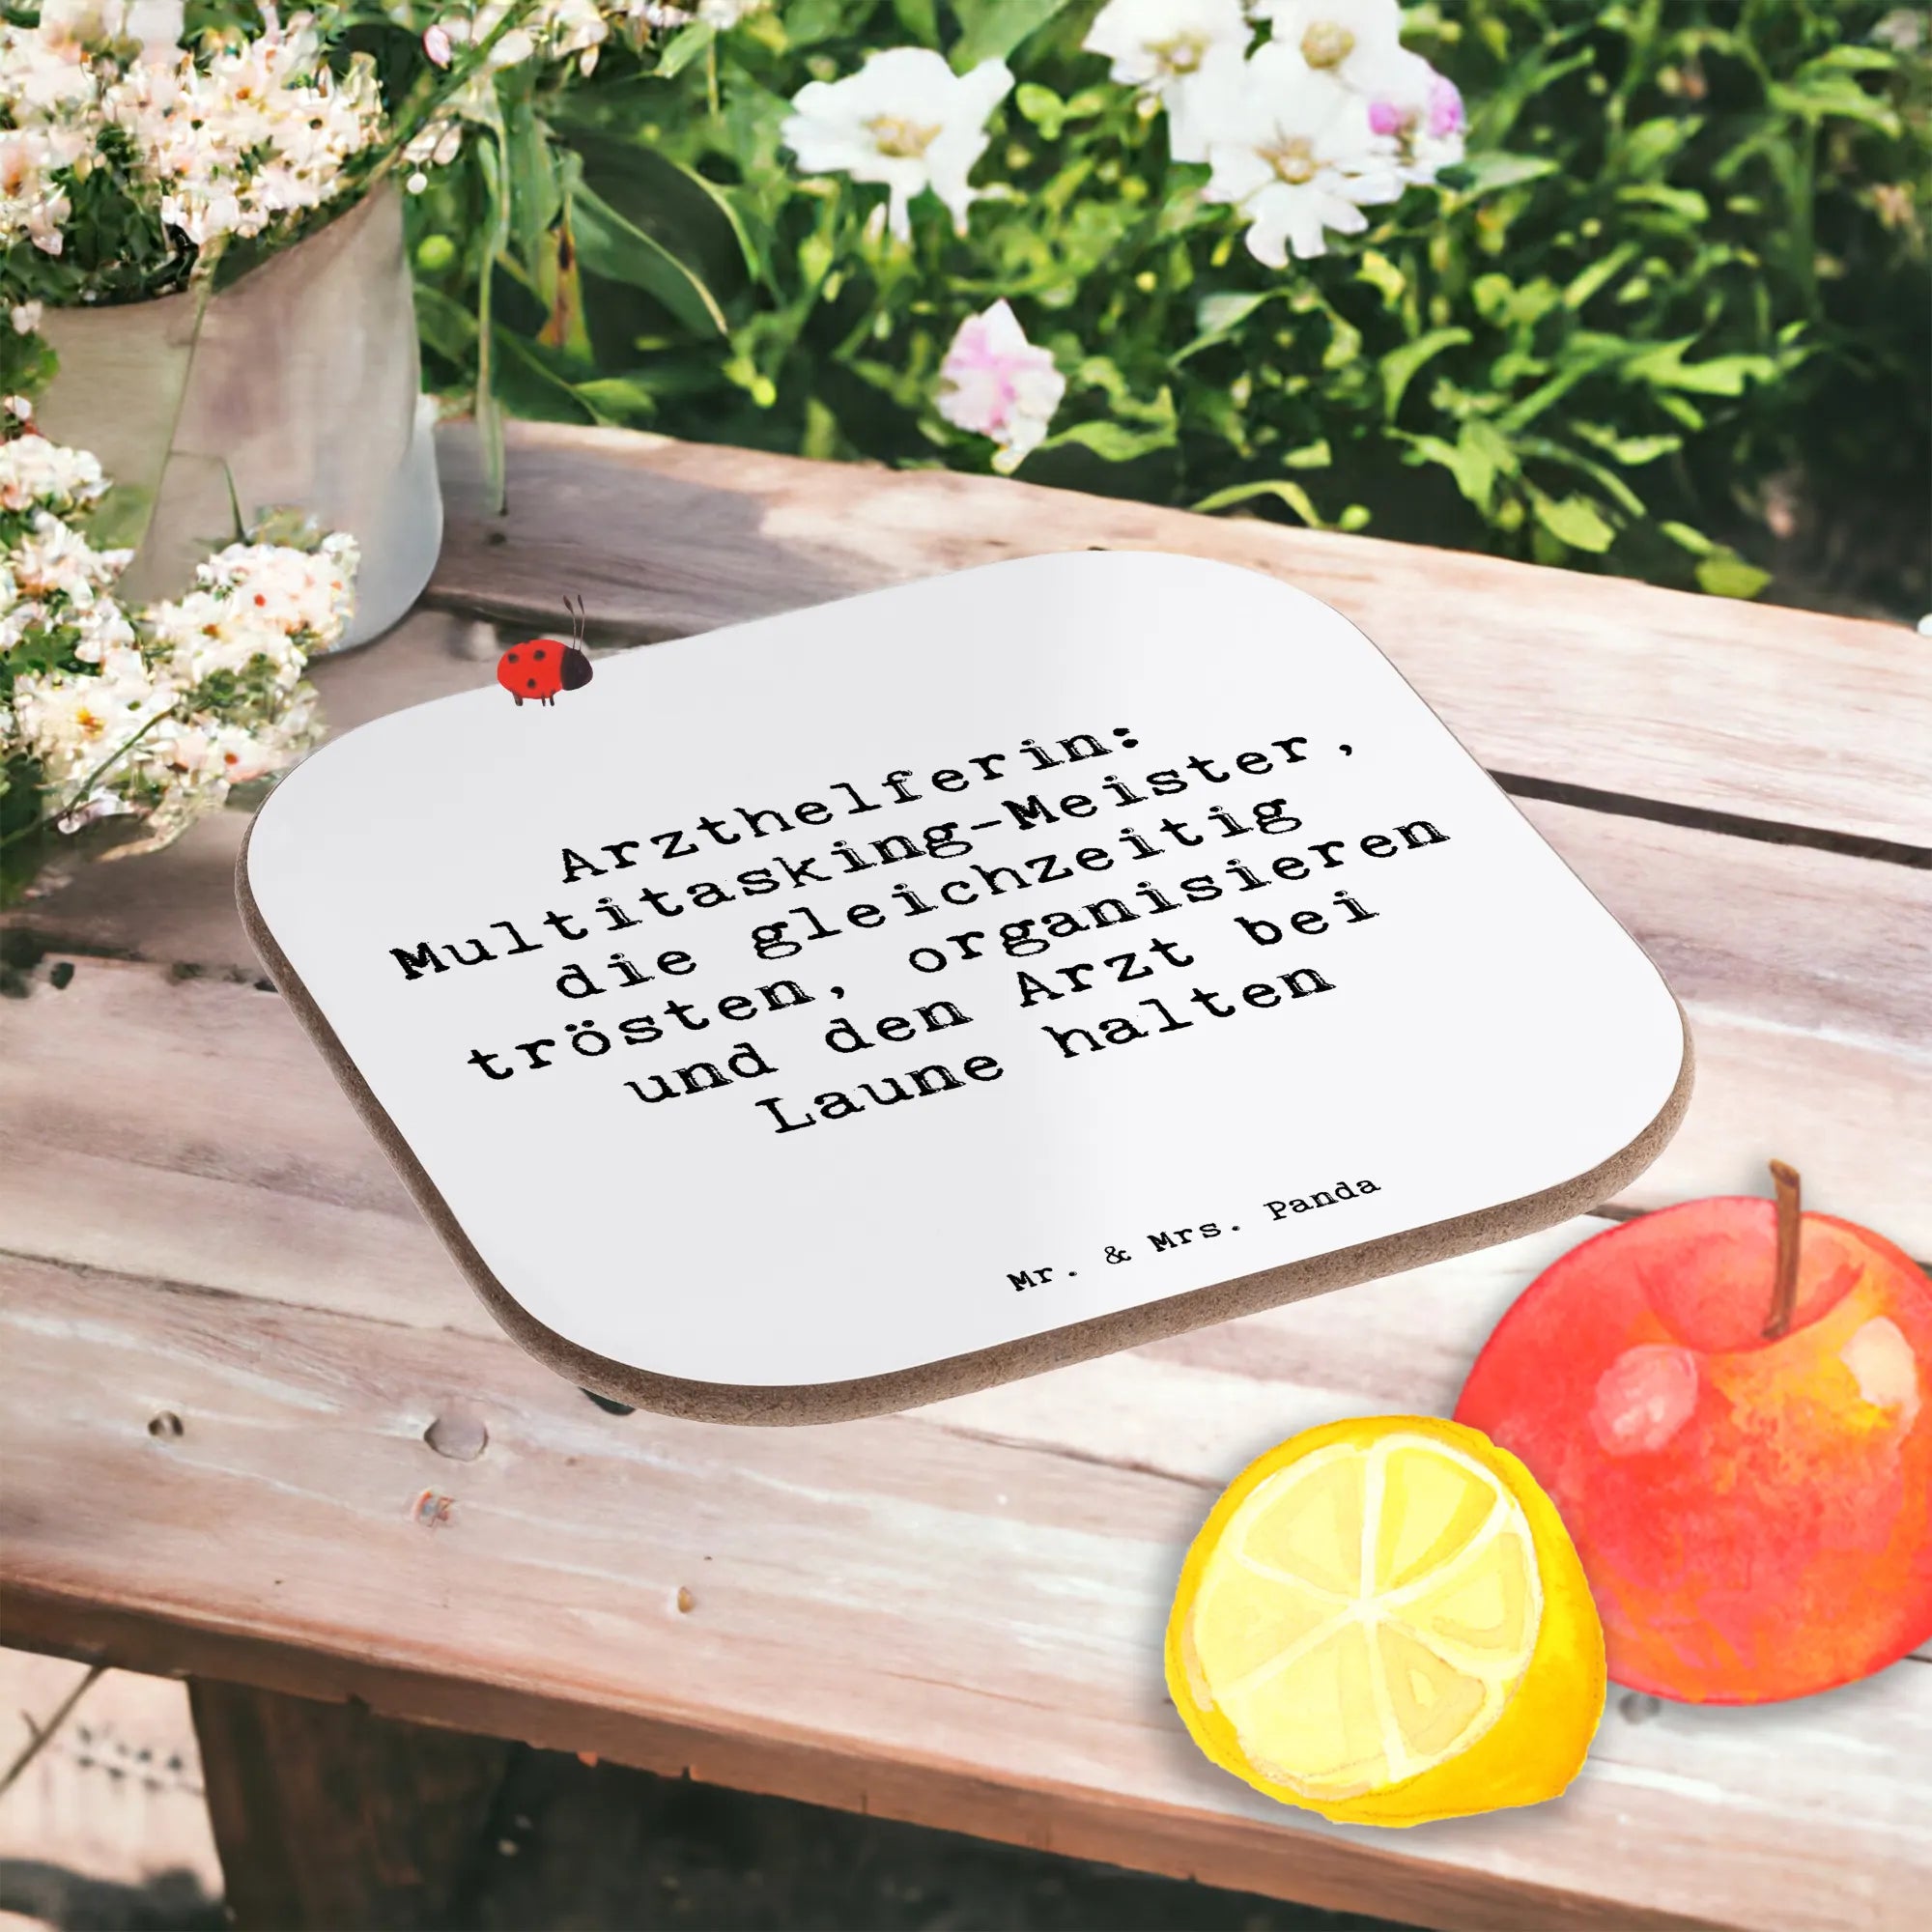 Arzthelferin:
Multitasking-Meister,
die gleichzeitig
trösten, organisieren
und den Arzt bei
Laune halten
Mr. & Mrs. Panda